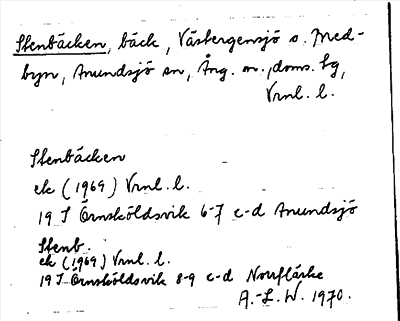 Stenbäcken, bäck, Västergensjö o. Med-
byn, Anundsjö sn, Ång. m., doms. lg,
Vrnl. l.
Stenbäcken
ek (1969) Vrnl. l.
19 I Örnsköldsvik 6-7 c-d Anundsjö
Stenb.
ek (1969) Vrnl. l.
19 I Örnsköldsvik 8-9 c-d Norrflärke
A.-L. W. 1970.